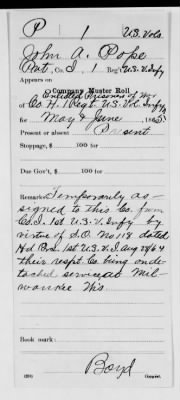 P 1 U.S. Vols.
John A. Pope
Pvt., Co. I, 1 Reg't U.S.V. Infy
Appears on
Company Muster Roll
of Enlisted Prisoners of War
Co. H. 1 Regt U.S. Vol. Infy
for May & June, 1865
Present or absent Present
Stoppage, $ 100 for
Due Gov't, $ 100 for
Remarks: Temporarily as-
signed to this Co. from
Co. I. 1st U.S.V. Infy by
virtue of S.O. No 118 dated
Hd Qrs. 1st U.S.V.I. Aug 28/64
their respt. Co. being on de-
tached service at Mil-
waukee Wis.
Book mark:
Boyd
Copyist.